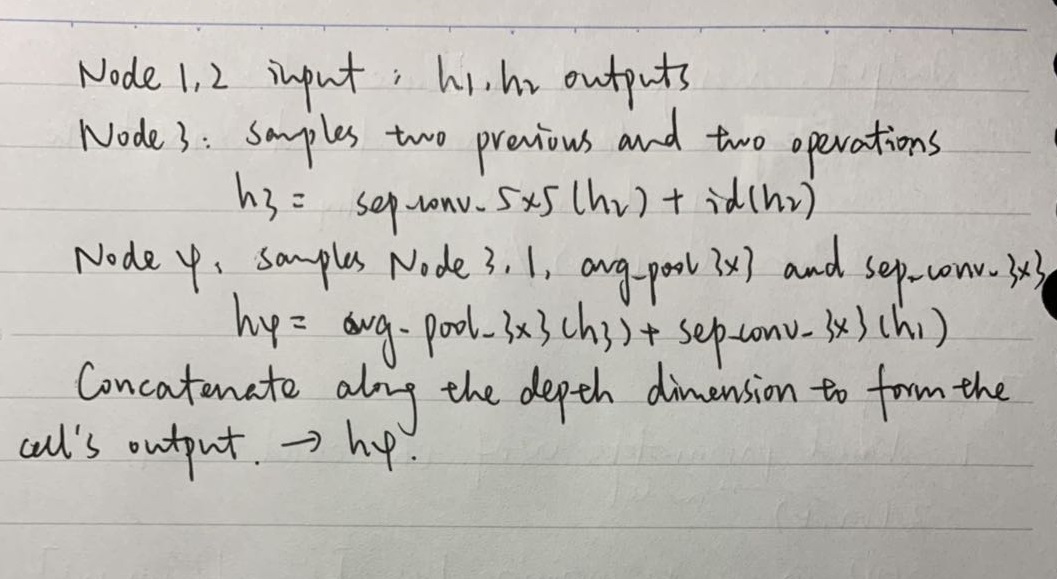 Node 1,2 input : h1, h2 outputs
Node 3: samples two previous and two operations
h3 = sep-conv-5x5 (h2) + id(h2)
Node 4, samples Node 3,1, avg-pool 3x3 and sep-conv-3x3
h4 = avg-pool-3x3 (h3) + sep-conv-3x3 (h1)
Concatenate along the depth dimension to form the
cell's output. → h4.